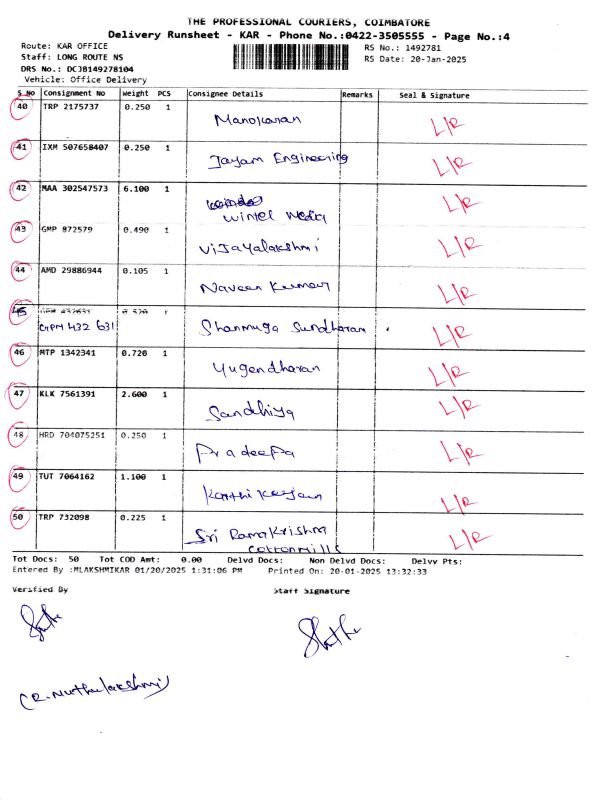 THE PROFESSIONAL COURIERS, COIMBATORE
Delivery Runsheet - KAR - Phone No.:0422-3505555 - Page No.:4
Route: KAR OFFICE RS No.: 1492781
Staff: LONG ROUTE NS RS Date: 20-Jan-2025
DRS No.: DCJB149278104
Vehicle: Office Delivery
S No Consignment No Weight PCS Consignee Details Remarks Seal & Signature
40 TRP 2175737 0.250 1 Manokaran L/R
41 IXM 507658407 0.250 1 Jayam Engineering L/R
42 MAA 302547573 6.100 1 Wintel Media L/R
43 GMP 872579 0.490 1 Vijayalakshmi L/R
44 AMD 29886944 0.105 1 Naveen Kumar L/R
45 1 Shanmuga Sundharam L/R
GPM 432 631
46 MTP 1342341 0.720 1 Yugendharan L/R
47 KLK 7561391 2.600 1 Sandhiya L/R
48 HRD 704075251 0.250 1 Pradeepa L/R
49 TUT 7064162 1.100 1 Karthikeyan L/R
50 TRP 732098 0.225 1 Sri Rama Krishna L/R
Cotton Mills
Tot Docs: 50 Tot COD Amt: 0.00 Delvd Docs: Non Delvd Docs: Delvv Pts:
Entered By :MLAKSHMIKAR 01/20/2025 1:31:06 PM Printed On: 20-01-2025 13:32:33
Verified By Staff Signature
(R. Muthulakshmi)